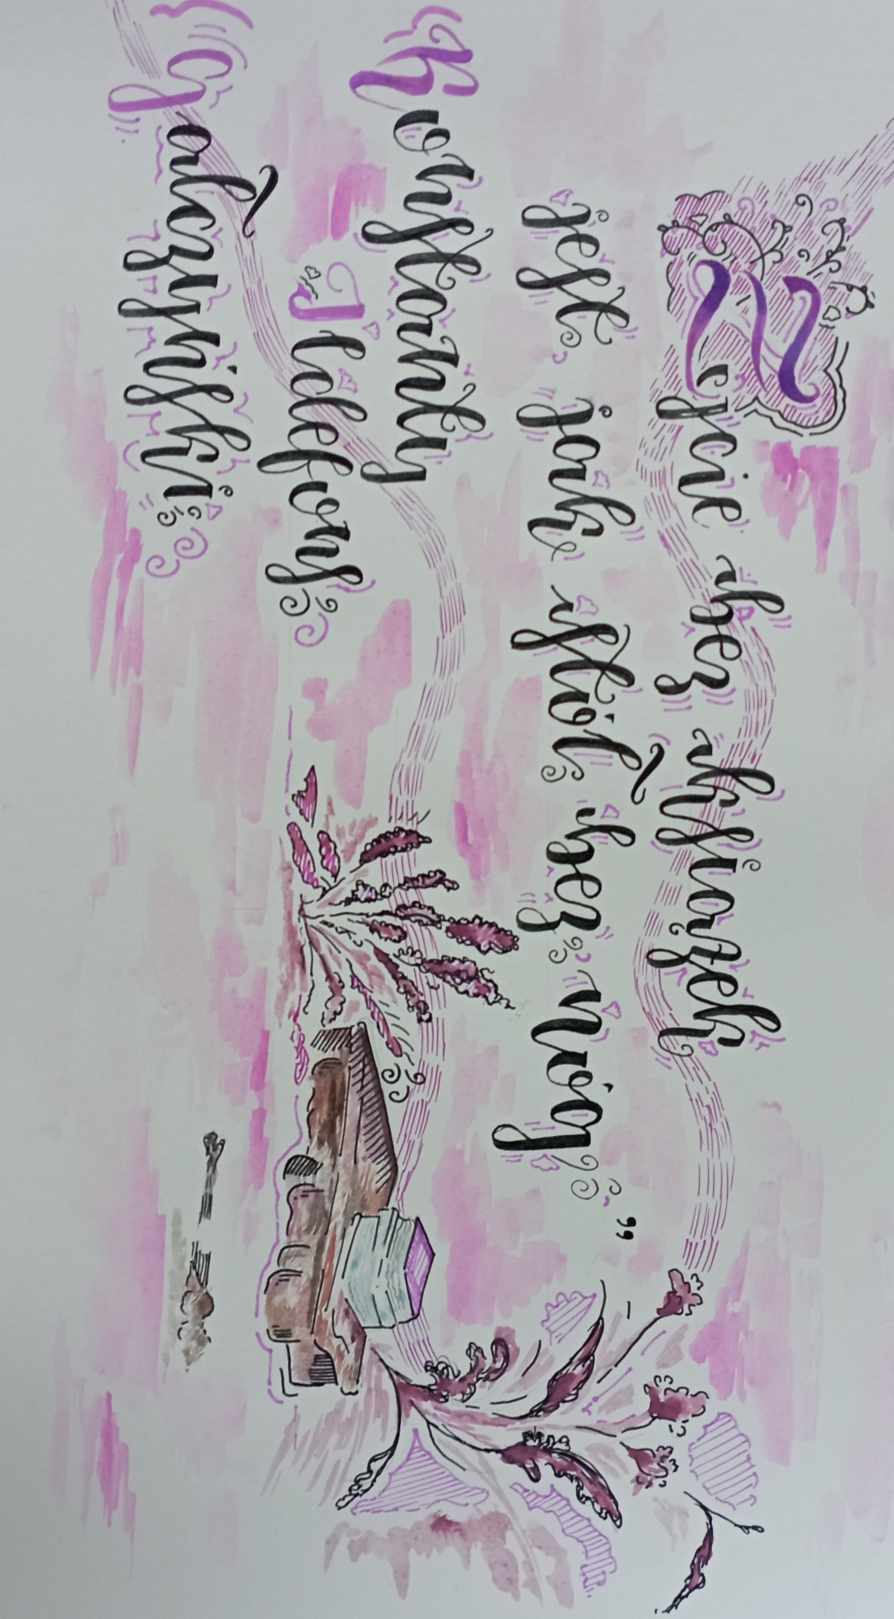 Życie bez książek
jest jak stół bez nóg”
Konstanty
Ildefons
Gałczyński